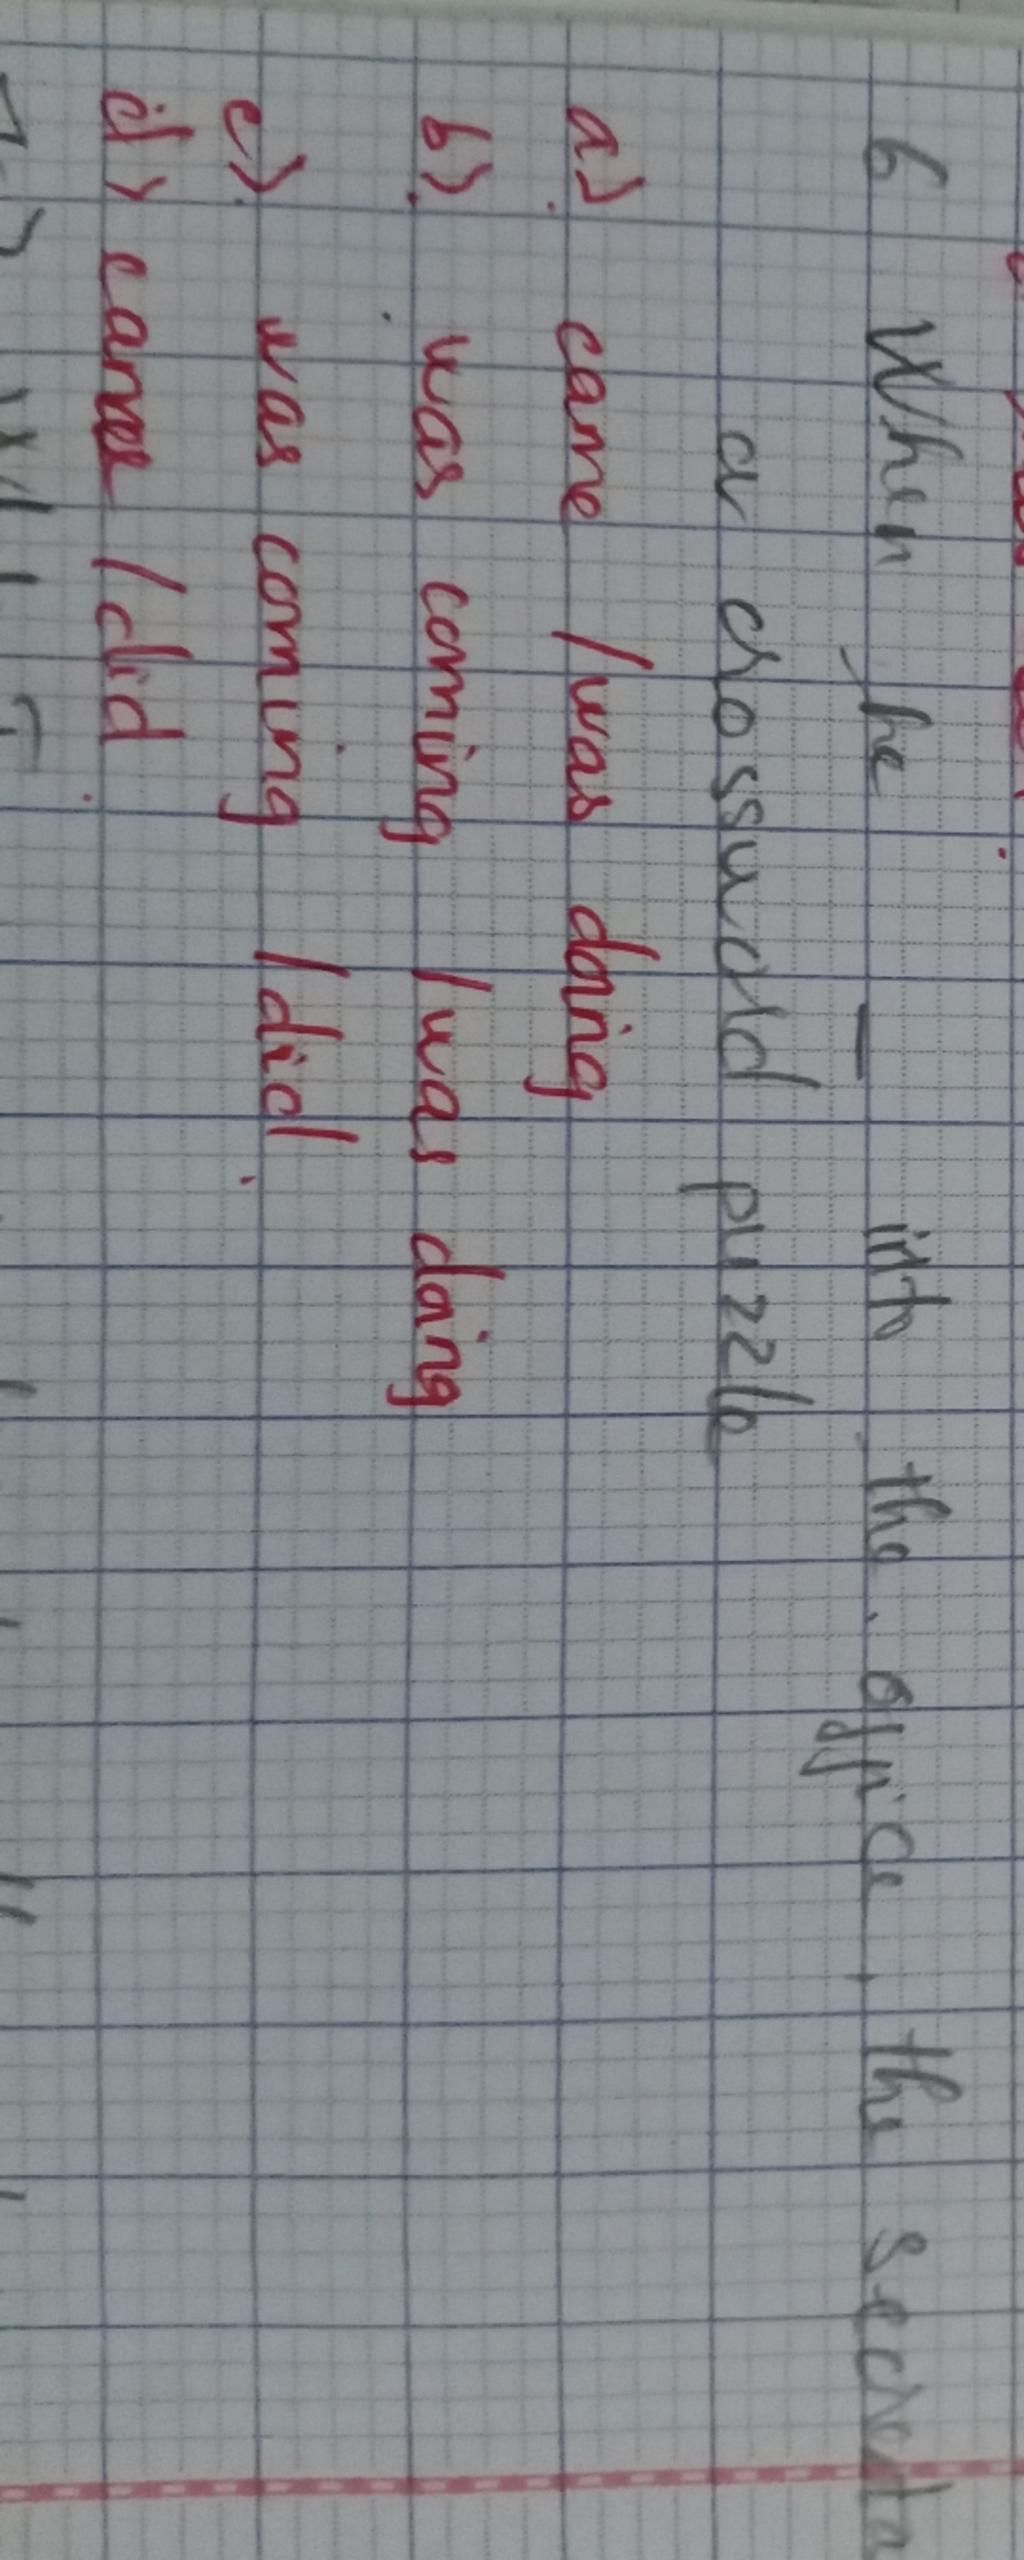 6 When he _ into the office, the secreta
a crossword puzzle
a) came / was doing
b) was coming / was doing
c) was coming / did
d) came / did